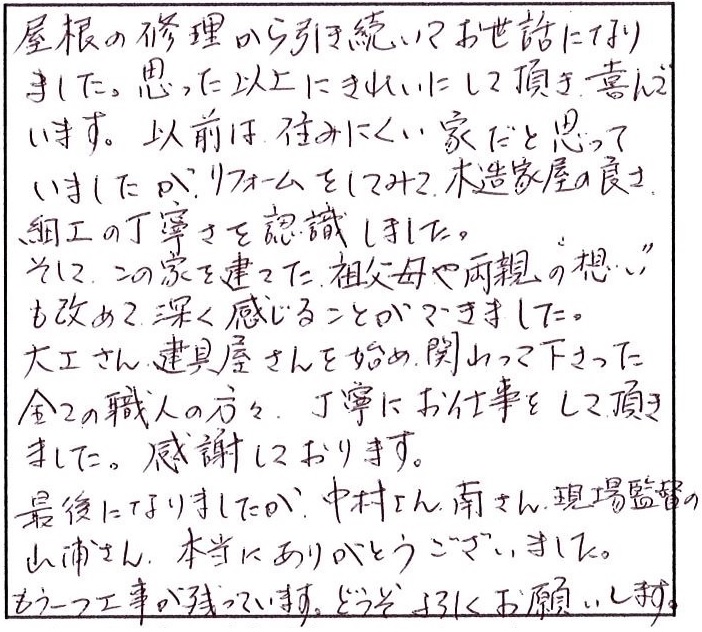 屋根の修理から引き続いてお世話になり
ました。思った以上にきれいにして頂き、喜んで
います。以前は、住みにくい家だと思って
いましたが、リフォームをしてみて、木造家屋の良さ、
細工の丁寧さを認識しました。
そして、この家を建てた、祖父母や両親の“想い”
も改めて、深く感じることができました。
大工さん、建具屋さんを始め、関わって下さった
全ての職人の方々、丁寧にお仕事をして頂き
ました。感謝しております。
最後になりましたが、中村さん、南さん、現場監督の
山浦さん、本当にありがとうございました。
もう一つ工事が残っています。どうぞよろしくお願いします。